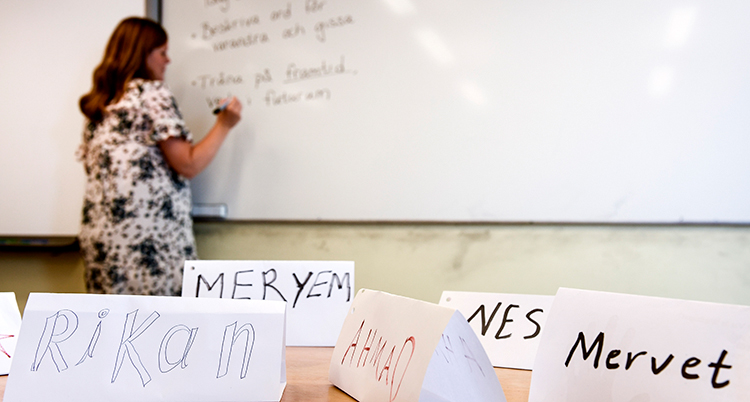 Beskriva ord för
varandra och gissa
Träna på framtid,
futurum
MERYEM
RiKan
AHMAD
NES
Mervet